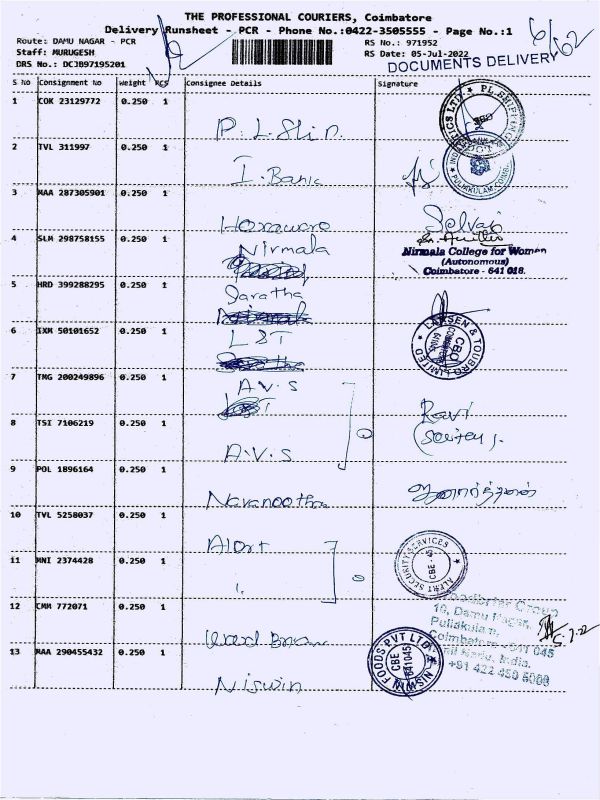 THE PROFESSIONAL COURIERS, Coimbatore
Delivery Runsheet - PCR - Phone No.:0422-3505555 - Page No.:1
6/62
Route: DAMU NAGAR - PCR
RS No.: 971952
Staff: MURUGESH
RS Date: 05-Jul-2022
DRS No.: DCJB97195201
DOCUMENTS DELIVERY
S No Consignment No Weight PCS Consignee Details Signature
1 COK 23129772 0.250 1
P. L. Shin.
2 TVL 311997 0.250 1
I. Bank
3 MAA 287305901 0.250 1
Selvaj
4 SLM 298758155 0.250 1
Nirmala
Nirmala College for Women
(Autonomous)
Coimbatore - 641 018.
5 HRD 399288295 0.250 1
Saratha
6 IXM 50101652 0.250 1
L&T
LARSEN & TOUBRO LIMITED
CBO
COIMBATORE
641045
7 TMG 200249896 0.250 1
A.V.S
Ravi
8 TSI 7106219 0.250 1
A.V.S
9 POL 1896164 0.250 1
ஜனார்த்தனன்
10 TVL 5258037 0.250 1
Alert
11 MNI 2374428 0.250 1
ALERT SECURITY SERVICES
CBE - 45
12 CMM 772071 0.250 1
Group
10, Damu Nagar,
Puliakulam,
Coimbatore - 641 045
Tamil Nadu, India.
+91 422 450 5000
5.7.22
13 MAA 290455432 0.250 1
NISWIN FOODS PVT LTD
CBE
641045
Niswin